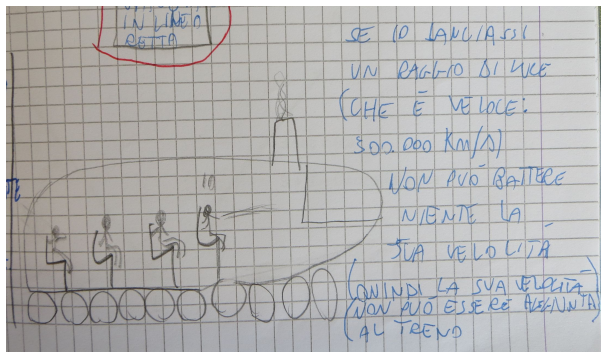 IN LINEA
RETTA
SE IO LANCIASSI
UN RAGGIO DI LUCE
(CHE È VELOCE:
300.000 KM/S)
NON PUÒ BATTERE
NIENTE LA
SUA VELOCITÀ
(QUINDI LA SUA VELOCITÀ
NON PUÒ ESSERE AGGIUNTA)
AL TRENO
IO